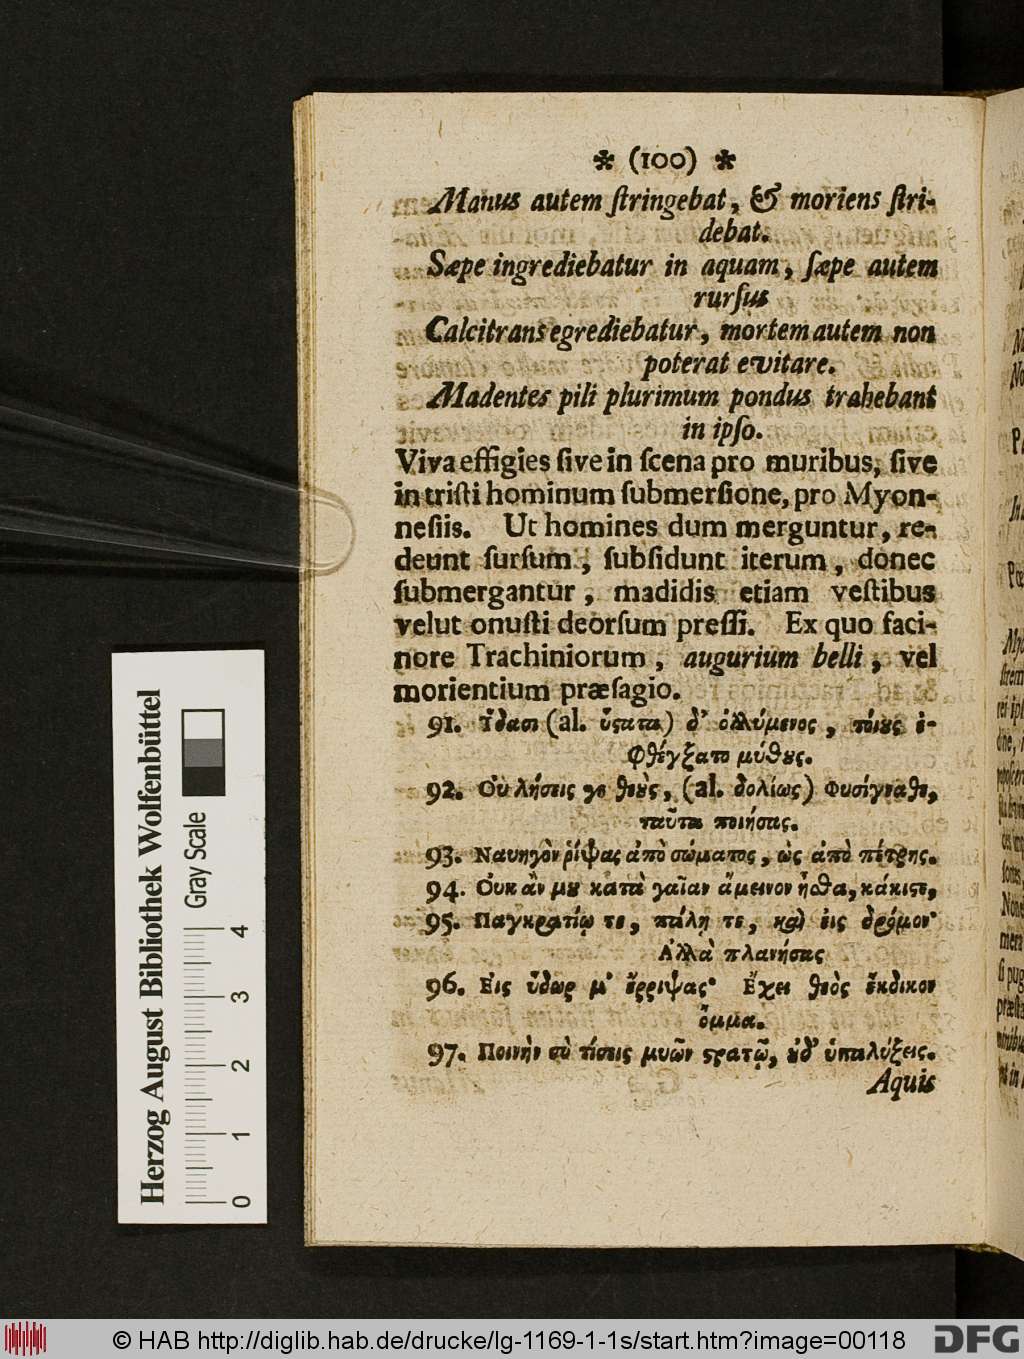 ✼ (100) ✼
Manus autem ſtringebat, & moriens ſtri-
debat.
Sæpe ingrediebatur in aquam, ſæpe autem
rurſus
Calcitrans egrediebatur, mortem autem non
poterat evitare.
Madentes pili plurimum pondus trahebant
in ipſo.
Viva effigies ſive in ſcena pro muribus, ſive
in triſti hominum ſubmerſione, pro Myon-
neſiis. Ut homines dum merguntur, re-
deunt ſurſum, ſubſidunt iterum, donec
ſubmergantur, madidis etiam veſtibus
velut onuſti deorſum preſſi. Ex quo faci-
nore Trachiniorum, augurium belli, vel
morientium præſagio.
91. Ὕδασι (al. ὕςατα) δ' ὀλλύμενος, τοίους ἐ-
φθέγξατο μύθους.
92. Οὐ λήσεις γε θεοὺς, (al. δολίως) Φυσίγναθε,
ταῦτα ποιήσας.
93. Ναυηγὸν ῥίψας ἀπὸ σώματος, ὡς ἀπὸ πέτρης.
94. Οὐκ ἂν μου κατὰ γαῖαν ἄμεινον ἦσθα, κάκιστε,
95. Παγκρατίῳ τε, πάλῃ τε, καὶ εἰς δρόμον·
Ἀλλὰ πλανήσας
96. Εἰς ὕδωρ μ' ἔρριψας· Ἔχει θεὸς ἔκδικον
ὄμμα.
97. Ποινὴν σὺ τίσεις μυῶν στρατῷ, οὐδ' ὑπαλύξεις.
Aquis
Herzog August Bibliothek Wolfenbüttel
Gray Scale
0 1 2 3 4
© HAB http://diglib.hab.de/drucke/lg-1169-1-1s/start.htm?image=00118
DFG